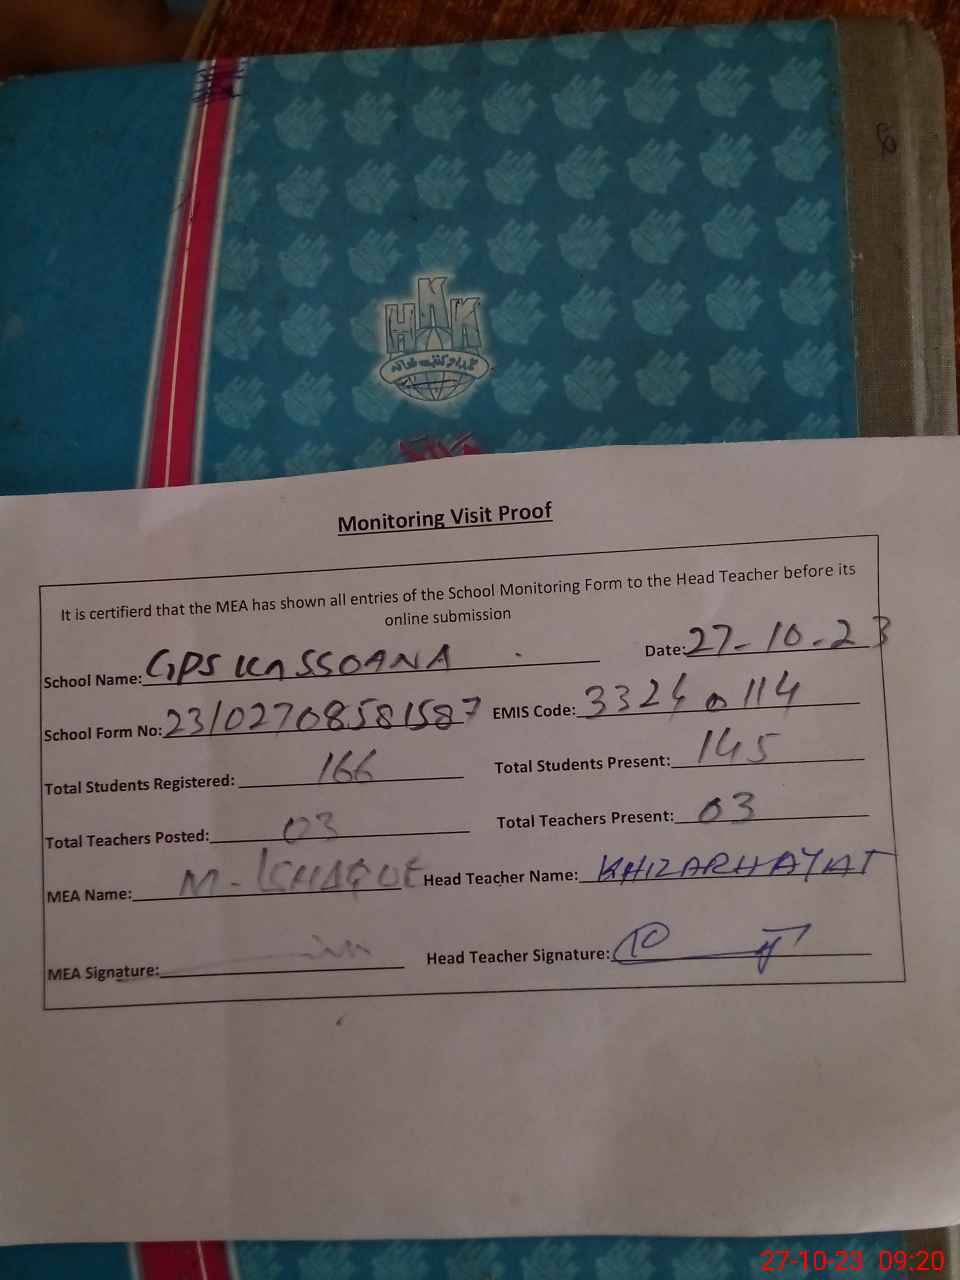 HKK
Monitoring Visit Proof
It is certifierd that the MEA has shown all entries of the School Monitoring Form to the Head Teacher before its
online submission
School Name: GPS KASSOANA Date: 27-10-23
School Form No: 23102708581587 EMIS Code: 33240114
Total Students Registered: 166 Total Students Present: 145
Total Teachers Posted: 03 Total Teachers Present: 03
MEA Name: M-ISHAQUE Head Teacher Name: KHIZAR HAYAT
MEA Signature: Head Teacher Signature:
27-10-23 09:20